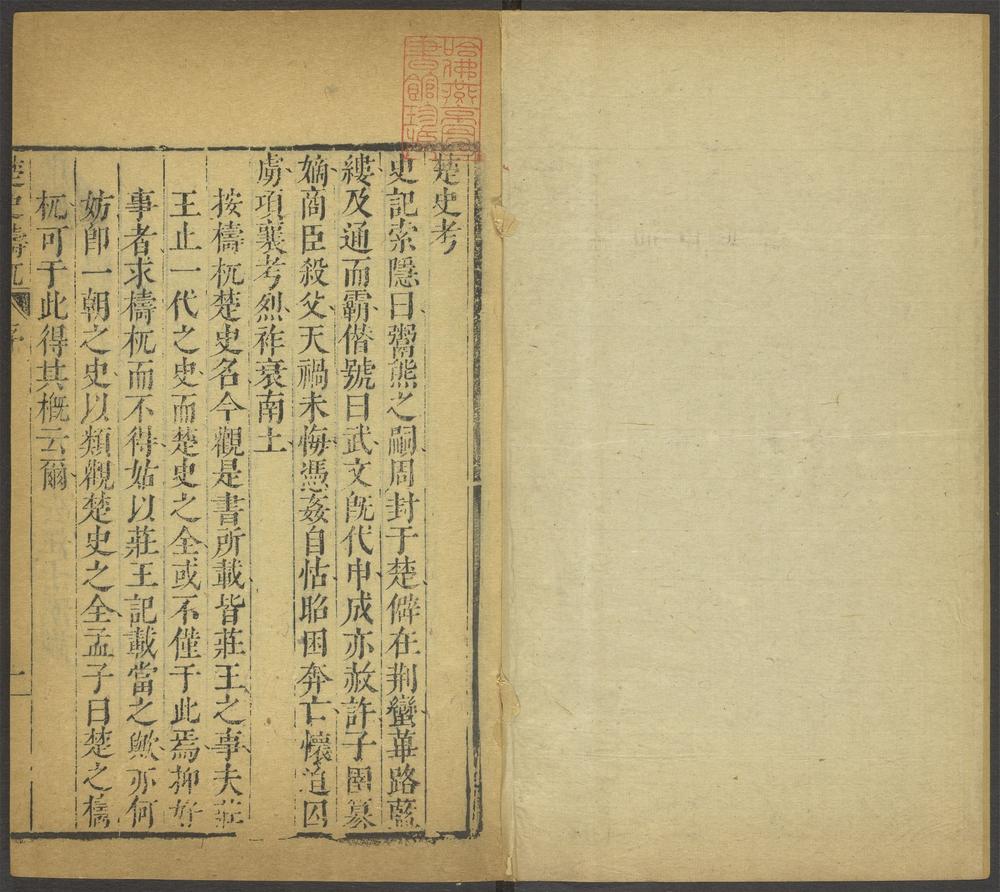 楚史考
史記索隱曰鬻熊之嗣周封于楚僻在荆蠻蓽路藍
縷及通而霸僭號曰武文旣代申成亦赦許子圉篡
嫡商臣殺父天禍未悔憑姦自怙昭困奔亡懷迫囚
虜項襄考烈祚衰南土
按檮杌楚史名今觀是書所載皆莊王之事夫莊
王止一代之史而楚史之全或不僅于此焉抑好
事者求檮杌而不得姑以莊王記載當之歟亦何
妨卽一朝之史以類觀楚史之全孟子曰楚之檮
杌可于此得其槪云爾
楚史檮杌
序
一
哈佛燕京
書館珍